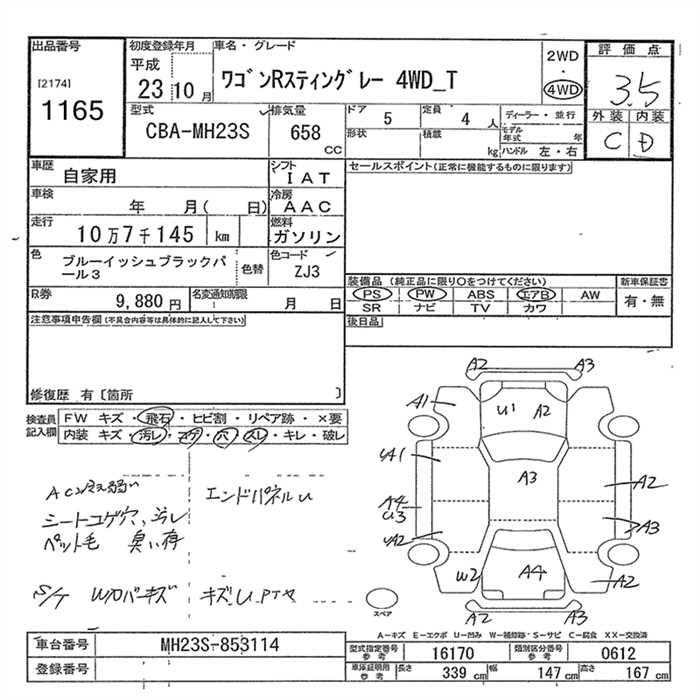 出品番号 初度登録年月 車名・グレード 評価点
[2174] 1165
平成 23 10 月 ワゴンRスティングレー 4WD_T 2WD ・ 4WD 3.5
型式 CBA-MH23S 排気量 658 CC
ドア 5 定員 4 人 ディーラー・並行 外装 内装
形状 積載 kg モデル年式 年 ハンドル 左・右 C D
車歴 自家用 シフト IAT セールスポイント(正常に機能するものに限ります)
車検 年 月( 日) 冷房 AAC
走行 10万7千145 km 燃料 ガソリン
色 ブルーイッシュブラックパ
ール3 色替 色コード ZJ3
装備品 (純正品に限り○をつけてください) 新車保証書
PS PW ABS エアB AW 有・無
SR ナビ TV カワ
R券 9,880 円 名変通知期限 月 日
注意事項申告欄(不具合内容等は具体的に記入して下さい) 後日品
修復歴 有〔箇所 〕
検査員記入欄 FW キズ・飛石・ヒビ割・リペア跡・×要
内装 キズ・汚レ・コゲ・穴・スレ・キレ・破レ
AC冷え弱い エンドパネルU
シートコゲ穴、汚レ
ペット毛 臭い有
S/T W/Oバーキズ キズ、U、PTヤ
A2 A3
A1 U1 A2
UA1 A3 A2
A4
U3 A3
UA2
W2 A4 A2
A2 A3
スペア
A-キズ E-エクボ U-凹み W-補修跡・S-サビ C-腐食 XX-交換済
車台番号 MH23S-853114 型式指定番号 参考 16170 類別区分番号 参考 0612
登録番号 車庫証明用 参考 長さ 339 cm 幅 147 cm 高さ 167 cm